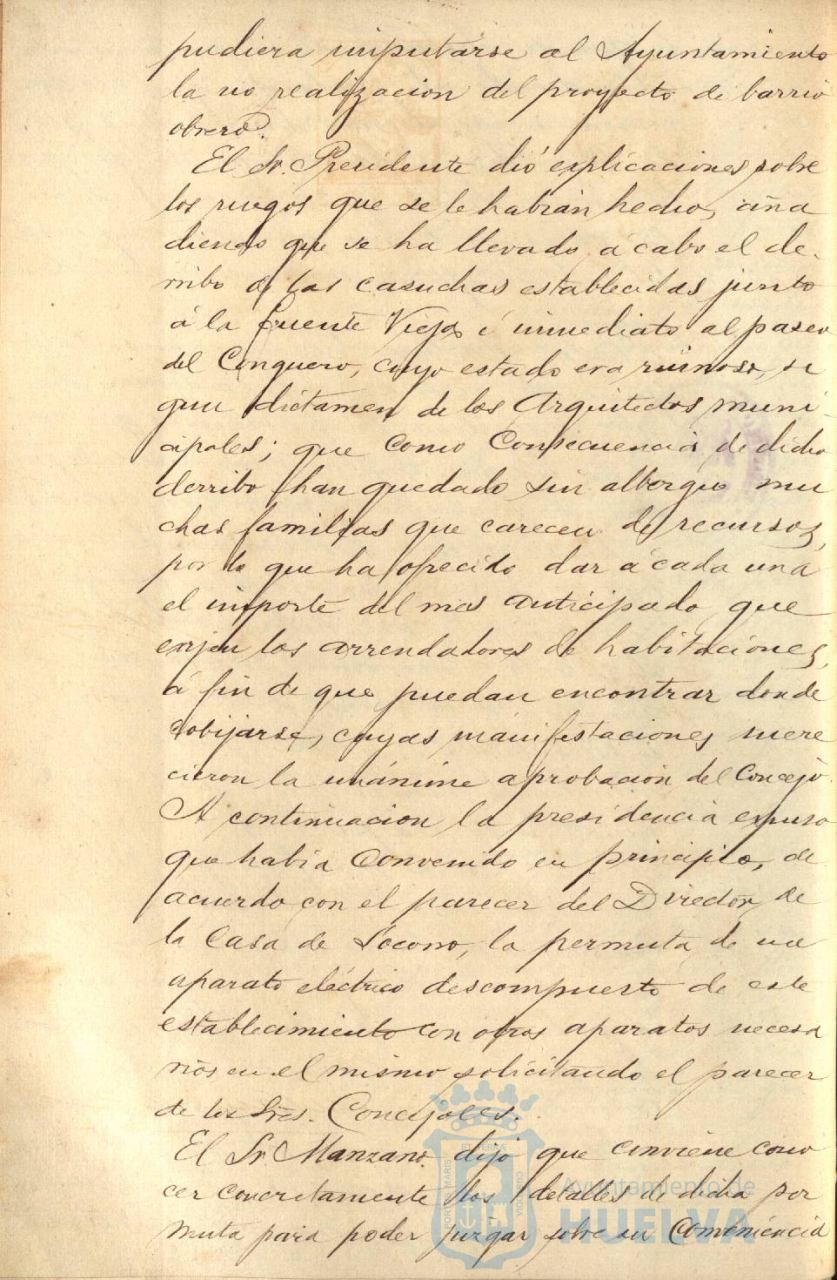 pudiera imputarse al Ayuntamiento
la no realizacion del proyecto de barrio
obrero.
El Sr. Presidente dió explicaciones sobre
los ruegos que se le habian hecho, aña
diendo que se ha llevado á cabo el de-
rribo de las casuchas establecidas junto
á la Fuente Vieja é inmediato al paseo
del Conquero, cuyo estado era ruinoso, se
gun dictamen de los Arquitectos muni-
cipales; que como consecuencia de dicho
derribo han quedado sin albergue mu
chas familias que carecen de recursos,
por lo que ha ofrecido dar á cada una
el importe del mes anticipado que
exijen los arrendadores de habitaciones,
á fin de que puedan encontrar donde
cobijarse, cuyas manifestaciones mere
cieron la unánime aprobación del Concejo.
A continuacion la presidencia expuso
que habia convenido en principio, de
acuerdo con el parecer del Director de
la Casa de Socorro, la permuta de un
aparato eléctrico descompuesto de este
establecimiento con otros aparatos necesa
rios en el mismo solicitando el parecer
de los Sres. Concejales.
El Sr. Manzano dijo que conviene cono
cer concretamente los detalles de dicha per
muta para poder juzgar sobre su conveniencia
Ayuntamiento de
HUELVA